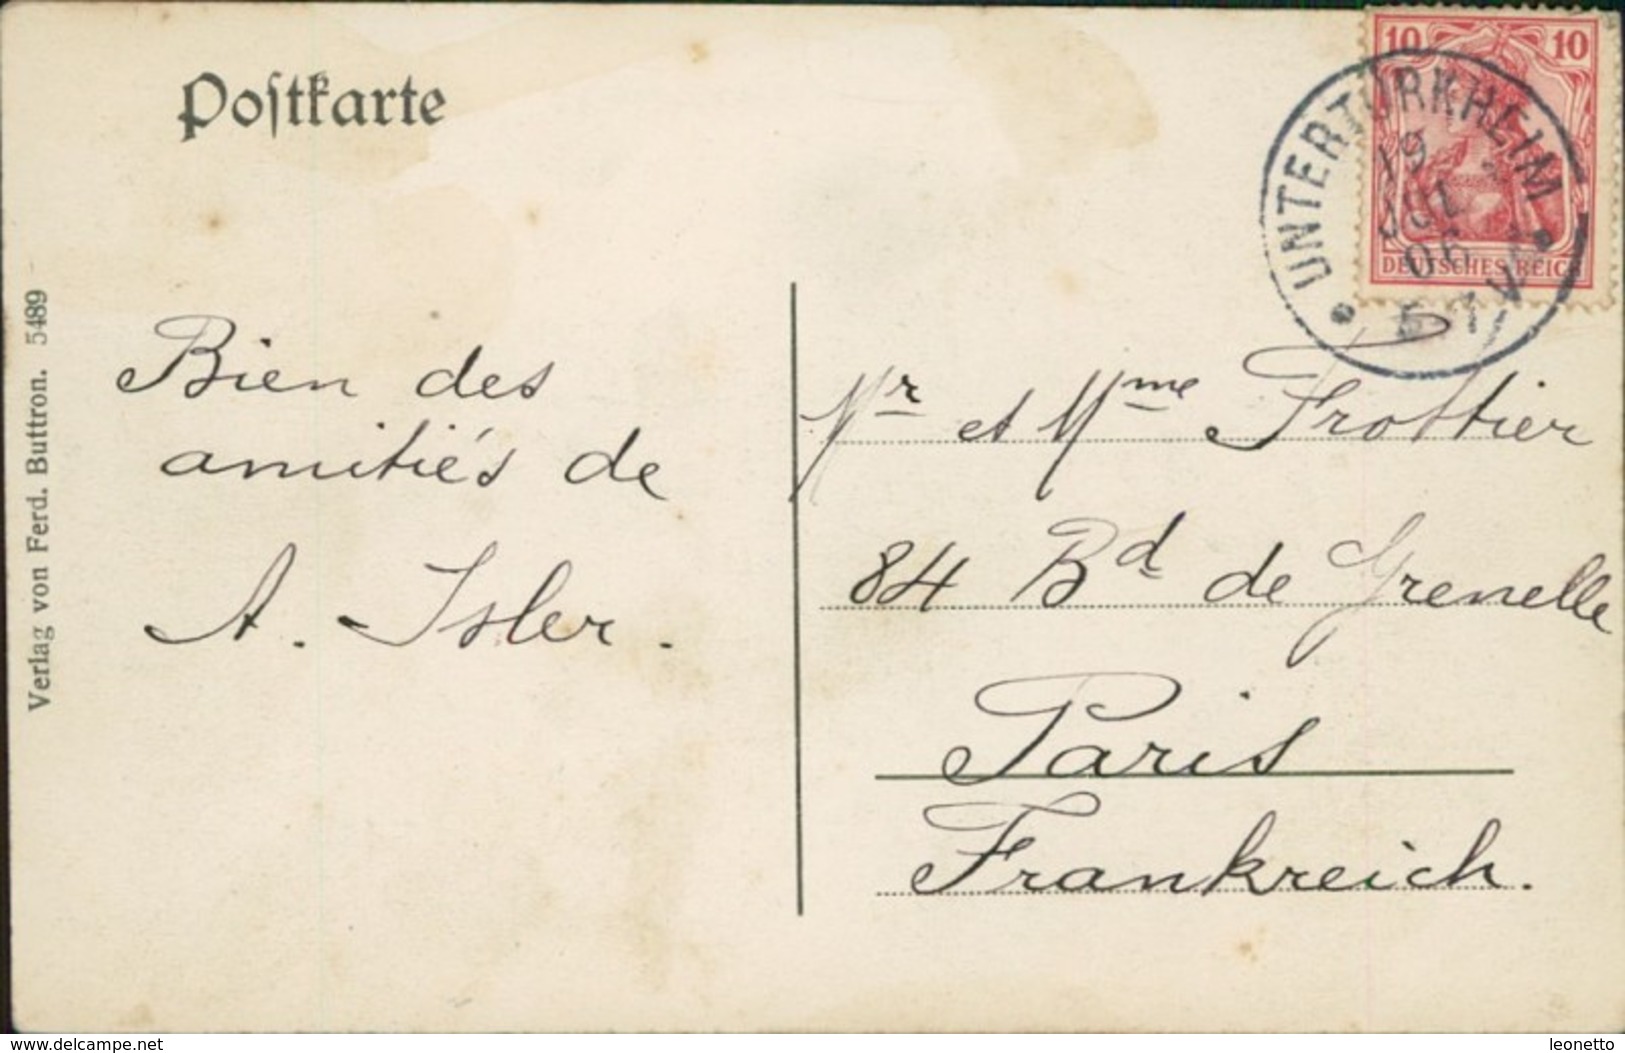 Postkarte
10 10
UNTERTÜRKHEIM
19
JUL
06
DEUTSCHES REICH
Verlag von Ferd. Buttron. 5489
Bien des
amitiés de
A. Isler.
Mr et Mme Frottier
84 Bd de Grenelle
Paris
Frankreich.
www.delcampe.net
leonetto